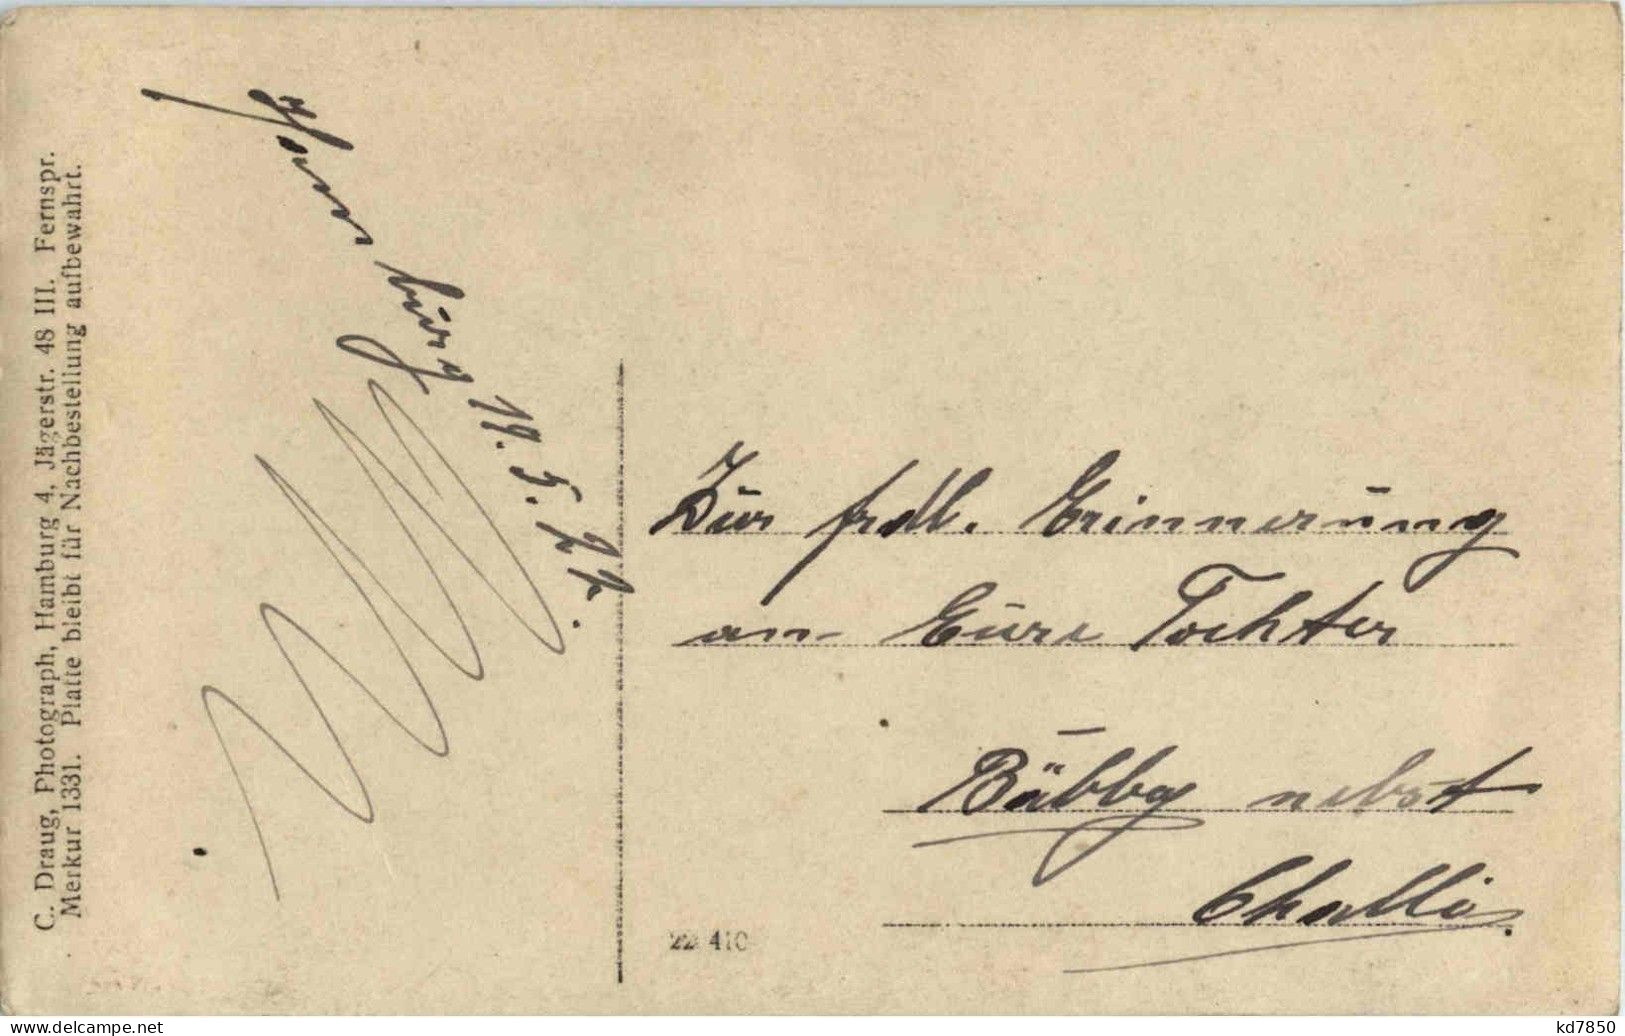 C. Draug, Photograph, Hamburg 4, Jägerstr. 48 III. Fernspr.
Merkur 1331. Platte bleibt für Nachbestellung aufbewahrt.
Hamburg 19. 5. 22.
Zur frdl. Erinnerung
an Eure Tochter
Bäbby nebst
22 410
delcampe.net
kd7850